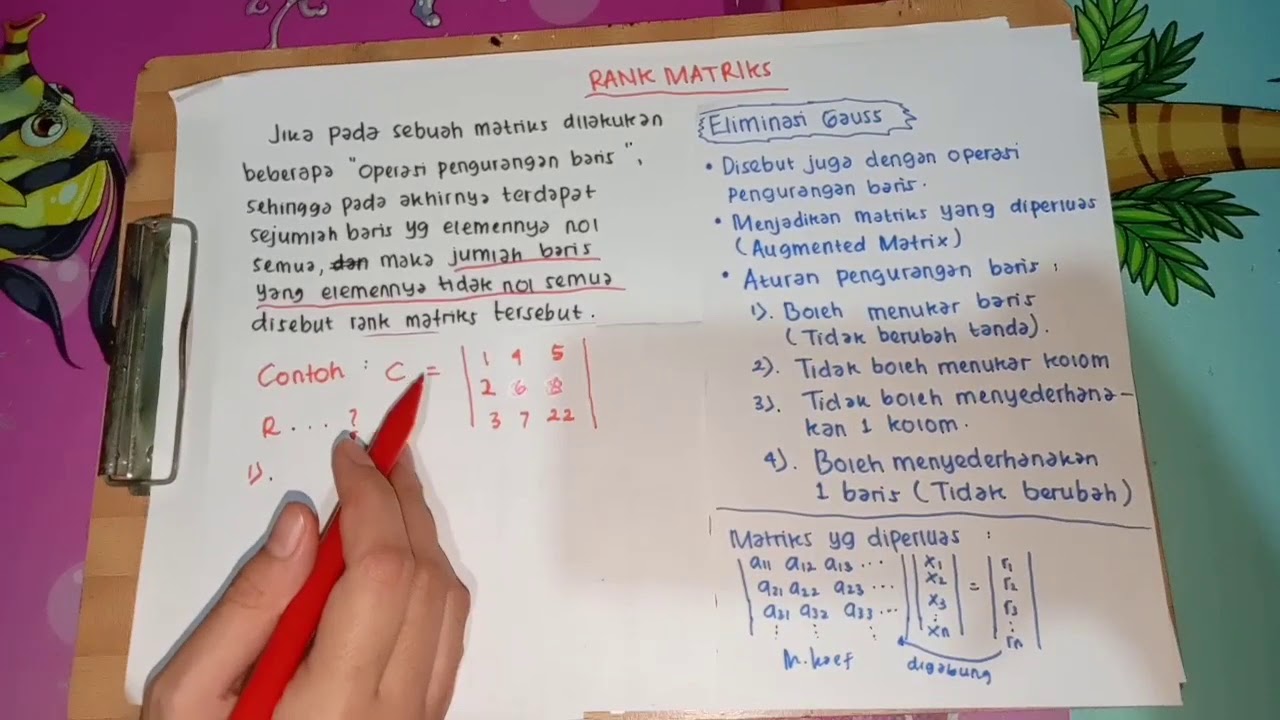 RANK MATRIKS
Jika pada sebuah matriks dilakukan
beberapa "Operasi pengurangan baris",
sehingga pada akhirnya terdapat
sejumlah baris yg elemennya nol
semua, dan maka jumlah baris
yang elemennya tidak nol semua
disebut rank matriks tersebut.
Contoh : C =
1 4 5
2 6 8
3 7 22
R . . . ?
1).
Eliminasi Gauss
• Disebut juga dengan operasi
pengurangan baris.
• Menjadikan matriks yang diperluas
(Augmented Matrix)
• Aturan pengurangan baris :
1). Boleh menukar baris
(Tidak berubah tanda).
2). Tidak boleh menukar kolom
3). Tidak boleh menyederhana-
kan 1 kolom.
4). Boleh menyederhanakan
1 baris (Tidak berubah)
Matriks yg diperluas :
a11 a12 a13 ... x1 r1
a21 a22 a23 ... x2 = r2
a31 a32 a33 ... x3 r3
⋮ ⋮ ⋮ ⋮ ⋮
xn rn
M. koef digabung